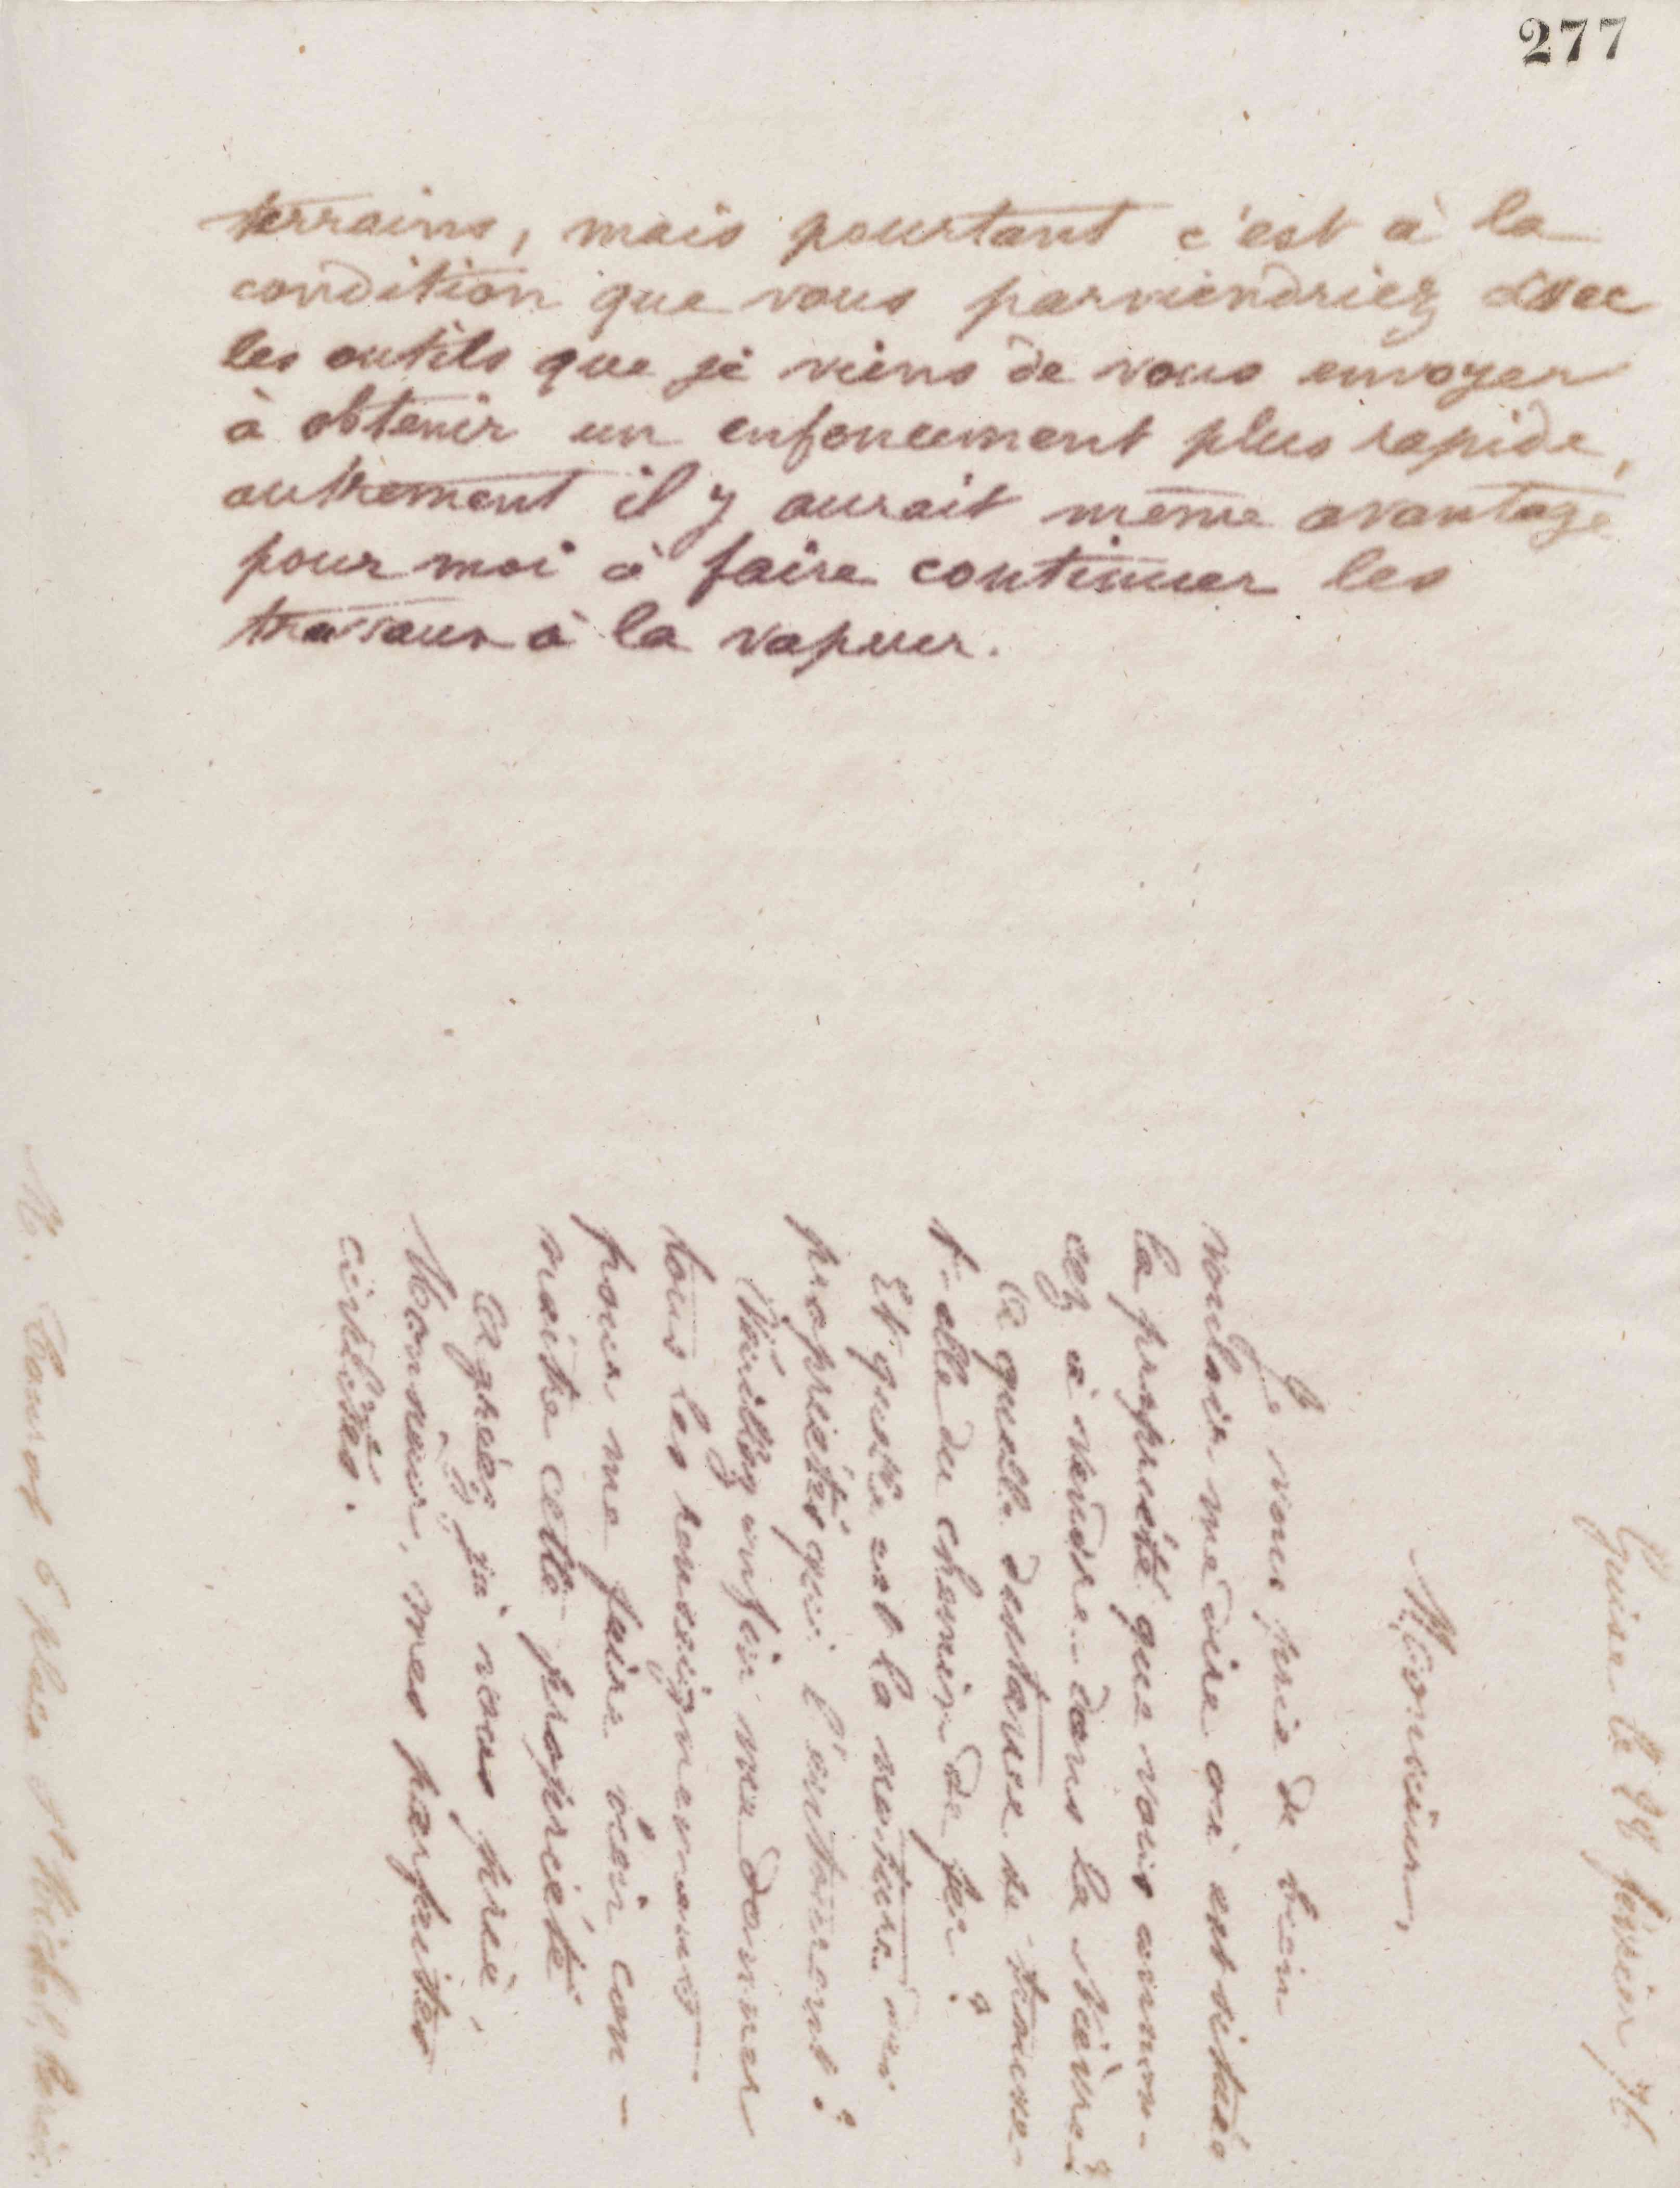 277
terrains, mais pourtant c'est à la
condition que vous parviendriez avec
les outils que je viens de vous envoyer
à obtenir un enfoncement plus rapide,
autrement il y aurait même avantage
pour moi à faire continuer les
travaux à la vapeur.
Guise le 28 février 76
Monsieur,
Je vous prie de bien
vouloir me dire où est située
la propriété que vous annon-
cez à vendre dans la Nièvre?
A quelle distance se trouve-
t-elle du chemin de fer?
Et quelle est la nature des
propriétés qui l'entourent?
Veuillez enfin me donner
tous les renseignements
pour me faire bien con-
naître cette propriété
Agréez, je vous prie,
Monsieur, mes parfaites
civilités.
M. 6 place St Michel, Paris.